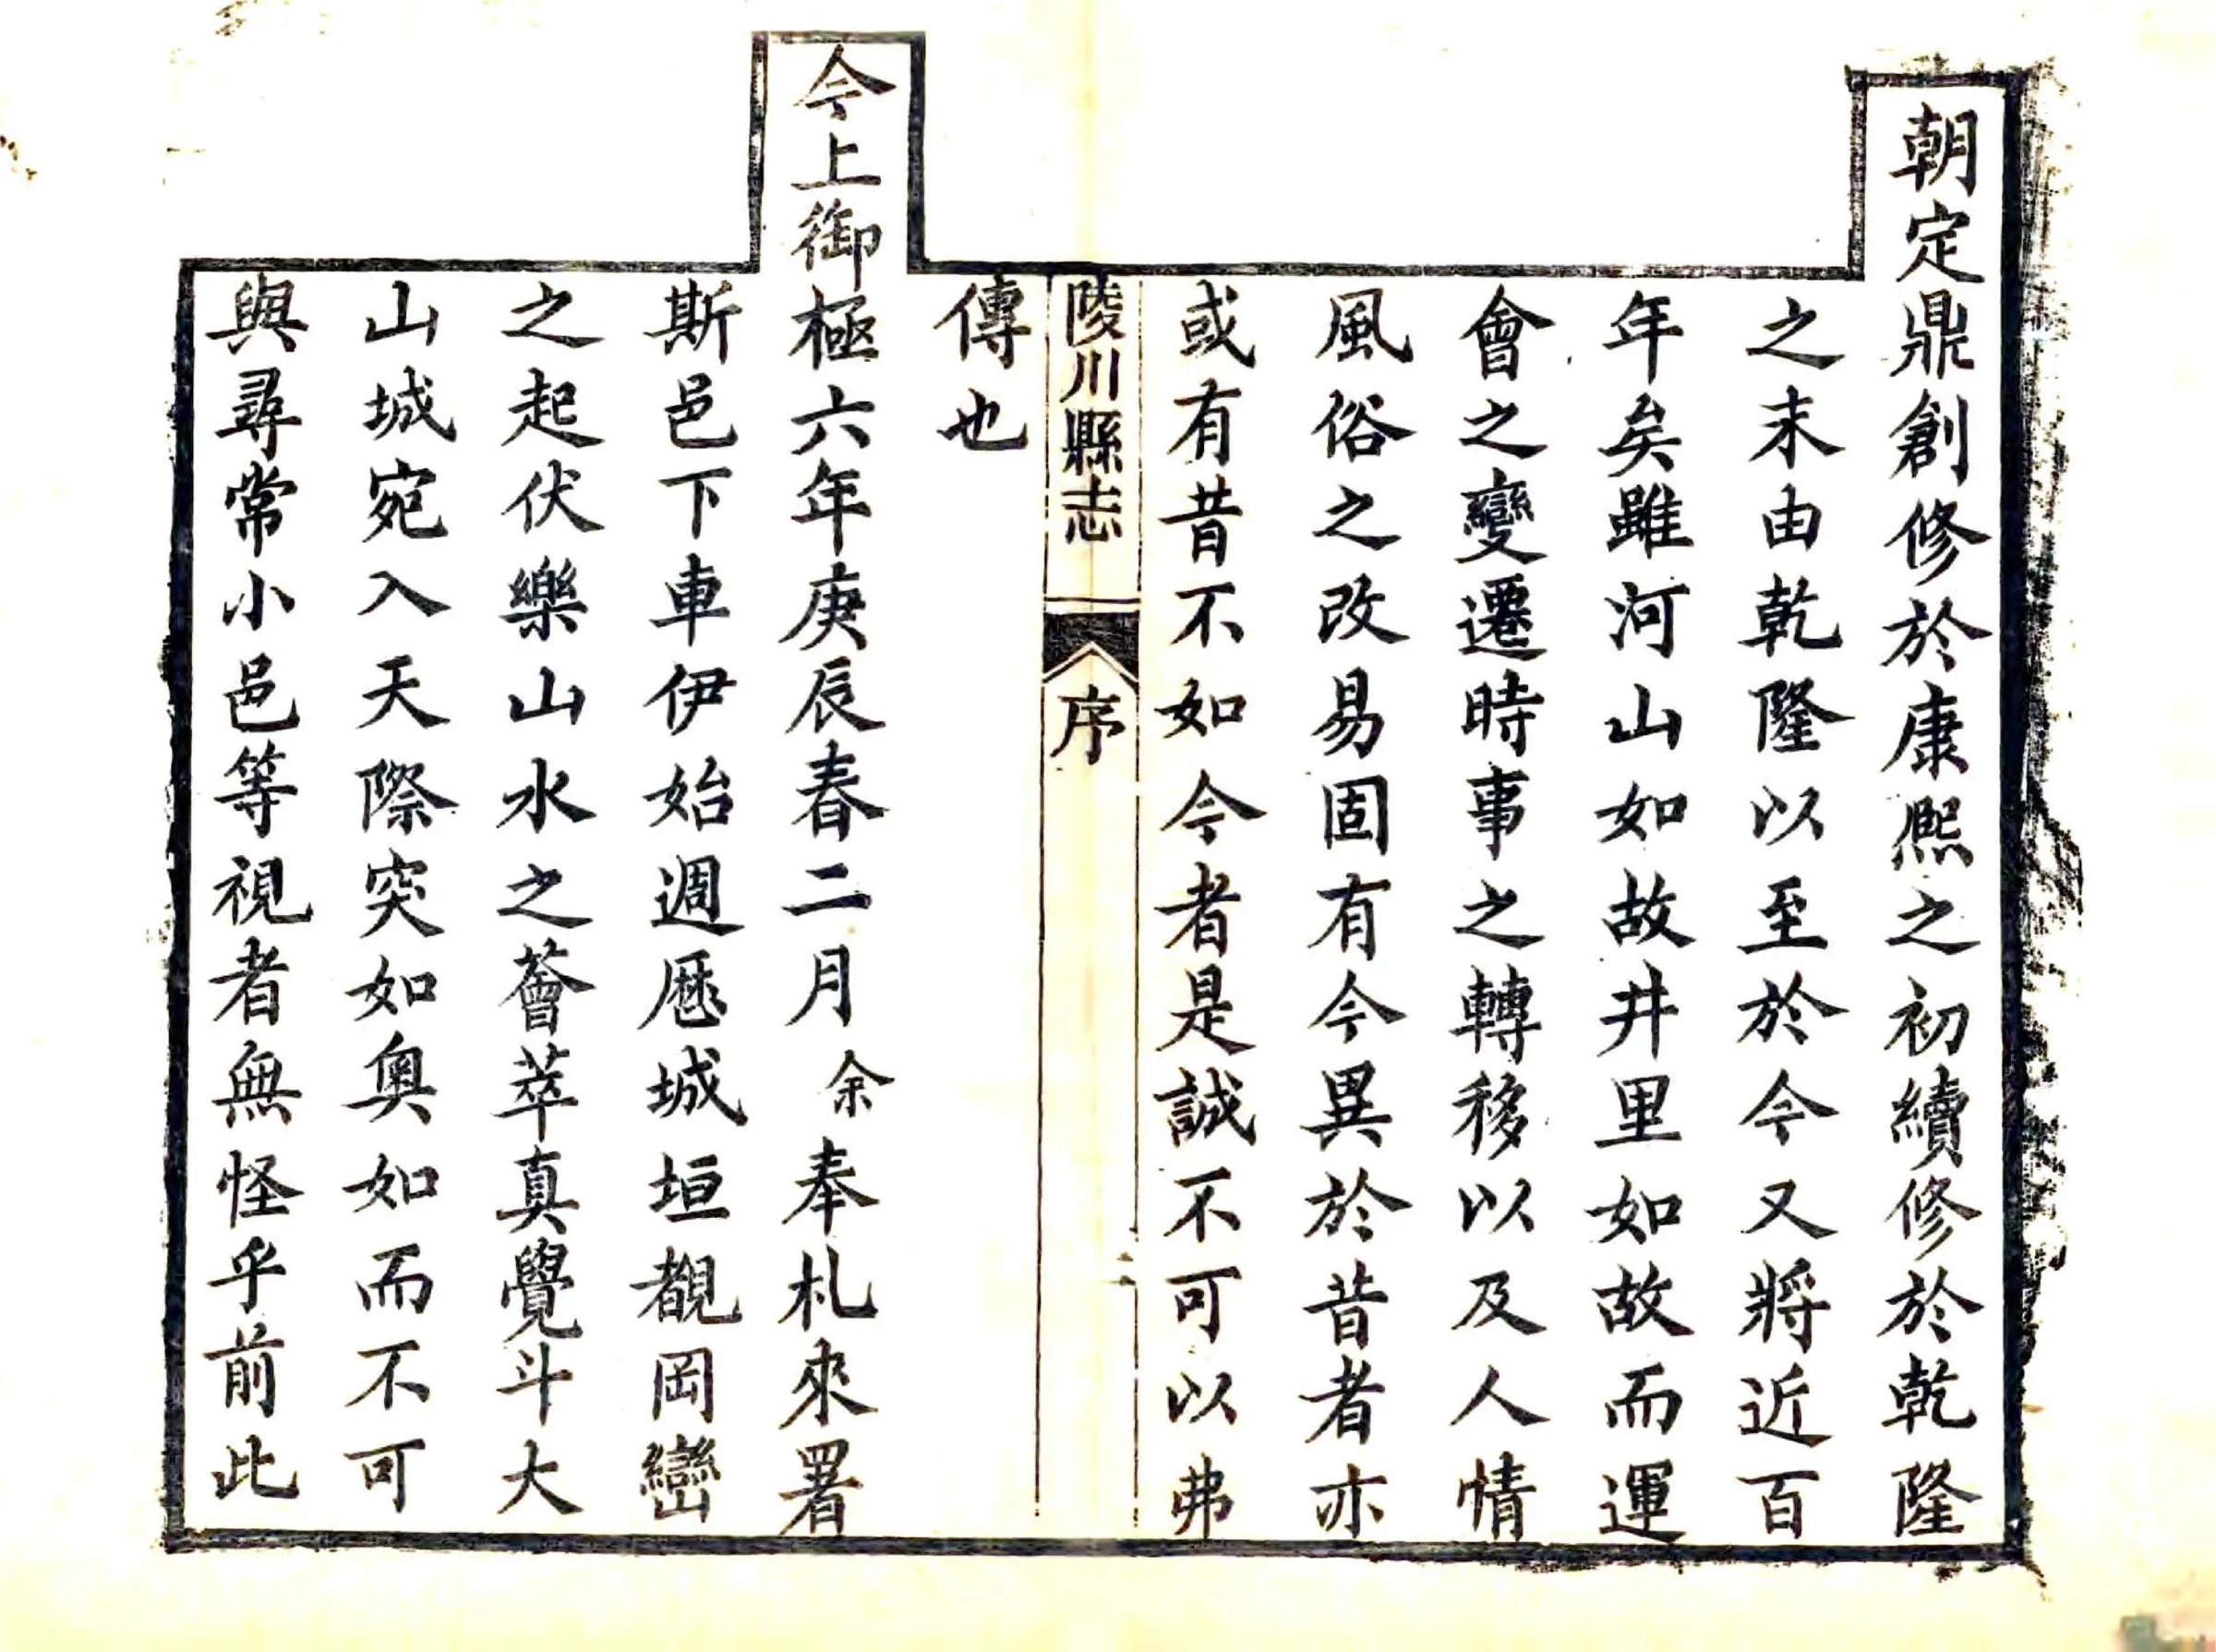 朝定鼎創修於康熙之初續修於乾隆
之末由乾隆以至於今又將近百
年矣雖河山如故井里如故而運
會之變遷時事之轉移以及人情
風俗之改易固有今異於昔者亦
或有昔不如今者是誠不可以弗
陵川縣志
序
二
傳也
今上御極六年庚辰春二月余奉札來署
斯邑下車伊始週厯城垣覩岡巒
之起伏樂山水之薈萃真覺斗大
山城宛入天際突如奧如而不可
與尋常小邑等視者無怪乎前此